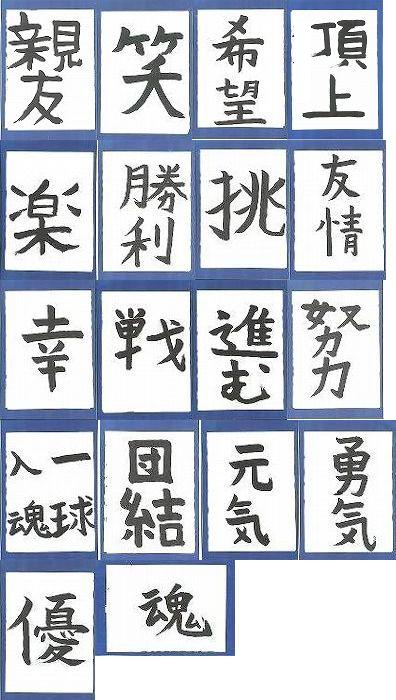 親友
笑
希望
頂上
楽
勝利
挑
友情
幸
戦
進む
努力
一球
入魂
団結
元気
勇気
優
魂